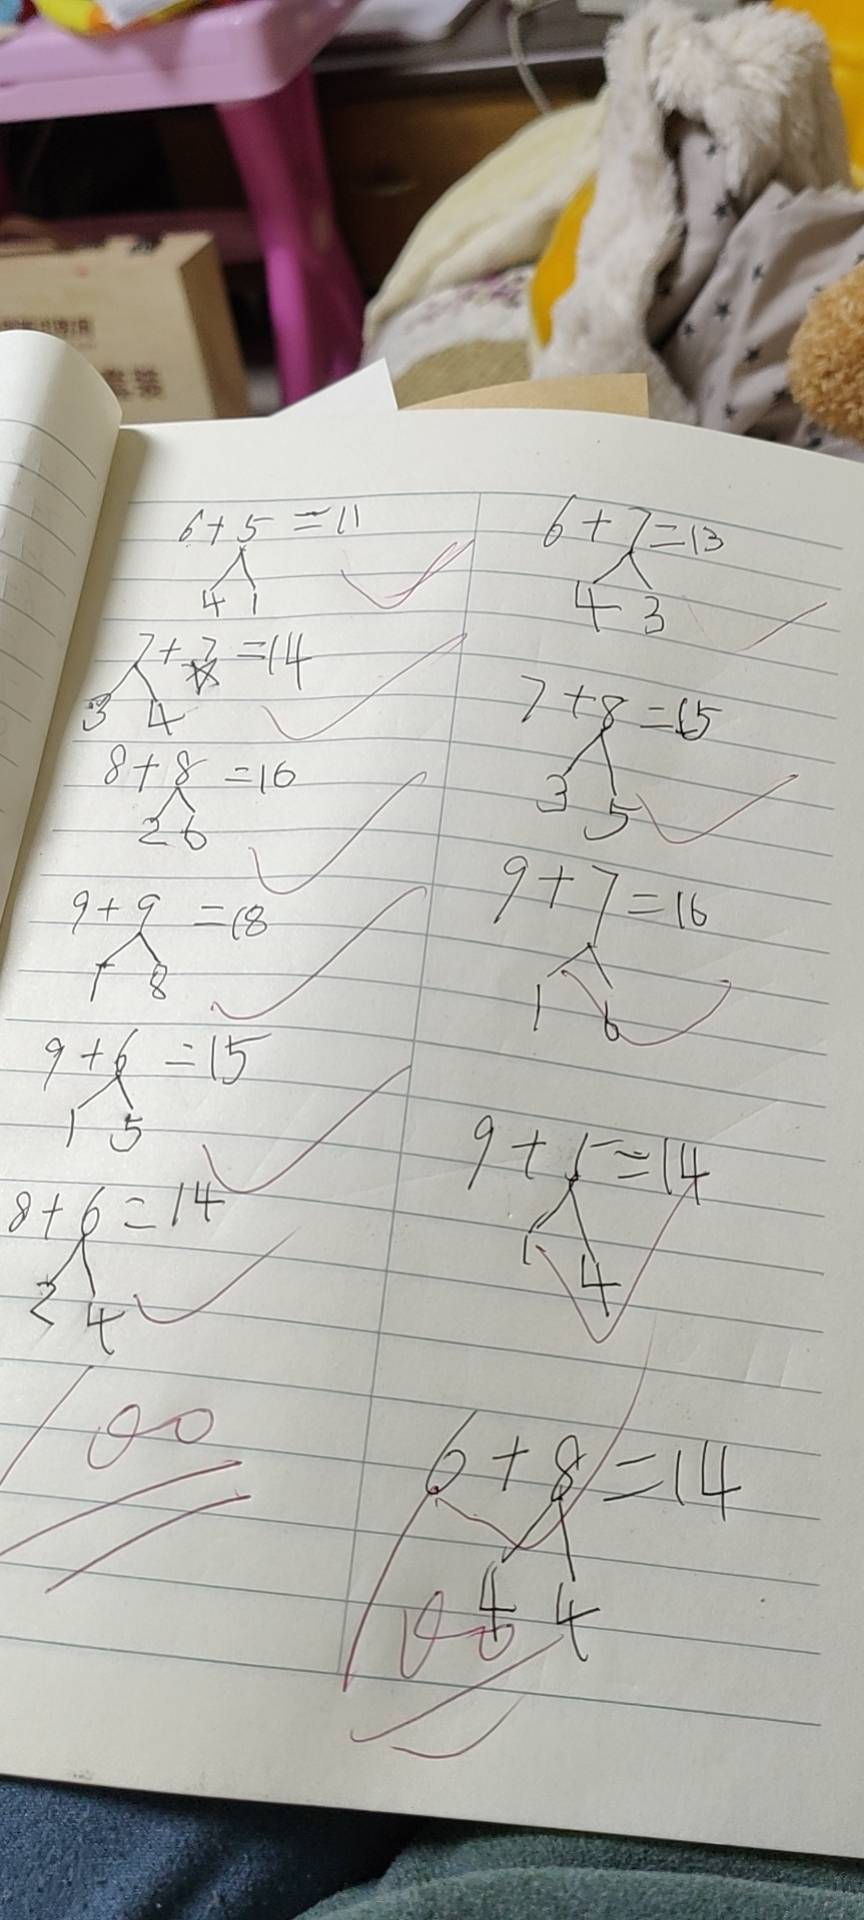 套装
6+5=11
4 1
7+7=14
3 4
8+8=16
2 6
9+9=18
1 8
9+6=15
1 5
8+6=14
2 4
100
6+7=13
4 3
7+8=15
3 5
9+7=16
1 6
9+5=14
1 4
6+8=14
4 4
100